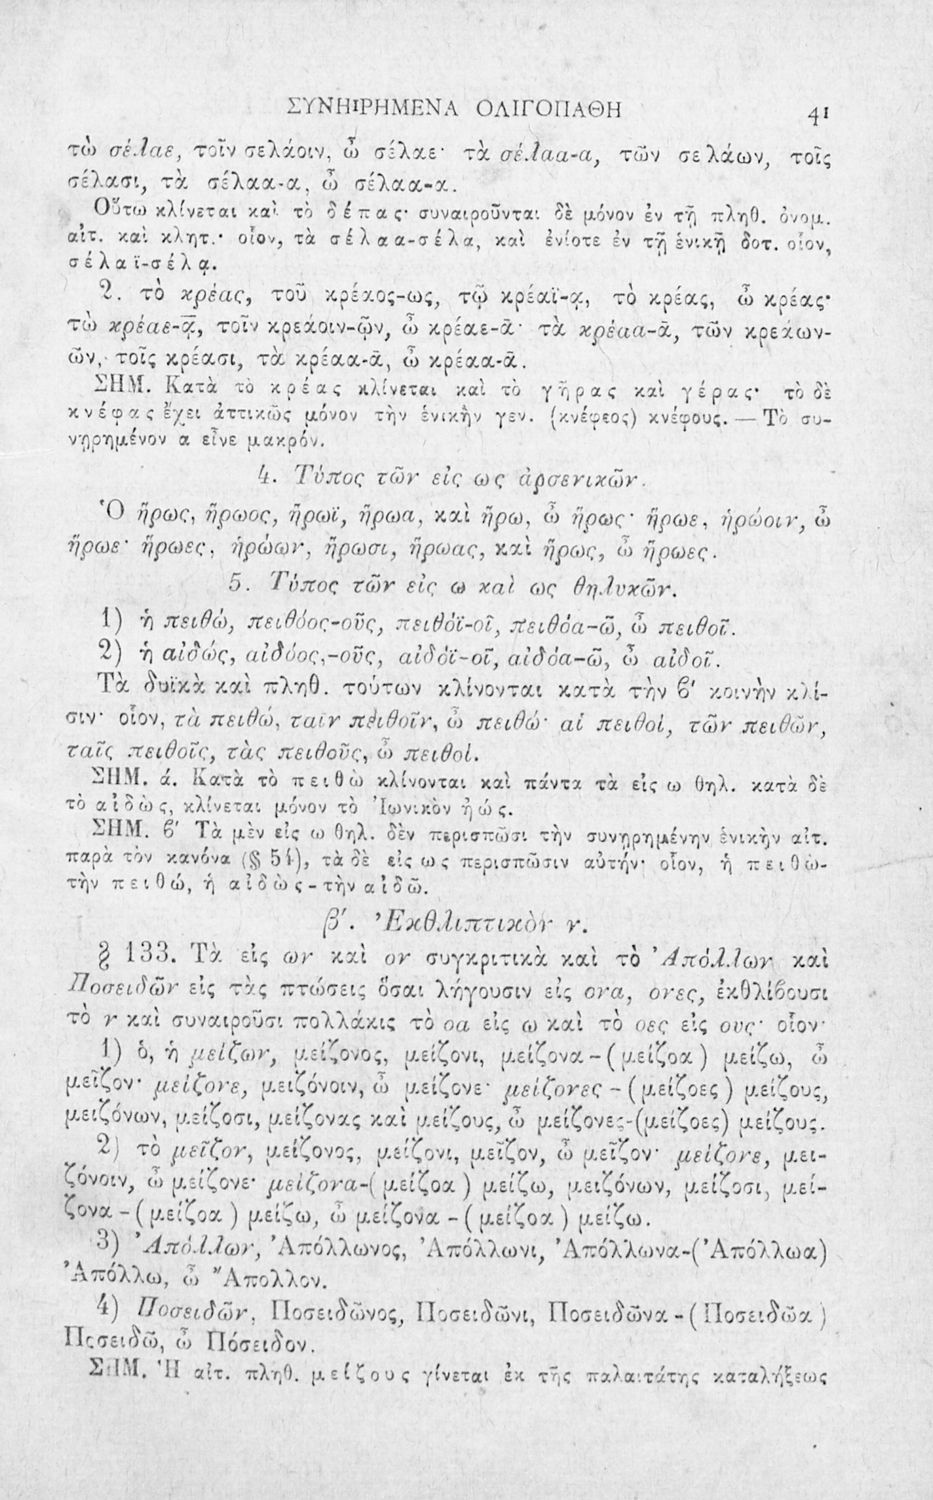 ΣΥΝΗΙΡΗΜΕΝΑ ΟΛΙΓΟΠΑΘΗ 41
τὼ σέλαε, τοῖν σελάοιν, ὦ σέλαε· τὰ σέλαα-α, τῶν σελάων, τοῖς
σέλασι, τὰ σέλαα-α, ὦ σέλαα-α.
Οὕτω κλίνεται καὶ τὸ δέπας· συναιροῦνται δὲ μόνον ἐν τῇ πληθ. ὀνομ.
αἰτ. καὶ κλητ.· οἷον, τὰ σέλαα-σέλα, καὶ ἐνίοτε ἐν τῇ ἑνικῇ δοτ. οἷον,
σέλαϊ-σέλᾳ.
2. τὸ κρέας, τοῦ κρέαος-ως, τῷ κρέαϊ-ᾳ, τὸ κρέας, ὦ κρέας·
τὼ κρέαε-ᾶ, τοῖν κρεάοιν-ῷν, ὦ κρέαε-ᾶ· τὰ κρέαα-ᾶ, τῶν κρεάων-
ῶν, τοῖς κρέασι, τὰ κρέαα-ᾶ, ὦ κρέαα-ᾶ.
ΣΗΜ. Κατὰ τὸ κρέας κλίνεται καὶ τὸ γῆρας καὶ γέρας· τὸ δὲ
κνέφας ἔχει ἀττικῶς μόνον τὴν ἑνικὴν γεν. (κνέφεος) κνέφους. — Τὸ συ-
νῃρημένον α εἶνε μακρόν.
4. Τύπος τῶν εἰς ως ἀρσενικῶν.
Ὁ ἥρως, ἥρωος, ἥρωϊ, ἥρωα, καὶ ἥρω, ὦ ἥρως· ἥρωε, ἡρώοιν, ὦ
ἥρωε· ἥρωες, ἡρώων, ἥρωσι, ἥρωας, καὶ ἥρως, ὦ ἥρωες.
5. Τύπος τῶν εἰς ω καὶ ως θηλυκῶν.
1) ἡ πειθώ, πειθόος-οῦς, πειθόϊ-οῖ, πειθόα-ῶ, ὦ πειθοῖ.
2) ἡ αἰδώς, αἰδόος,-οῦς, αἰδόϊ-οῖ, αἰδόα-ῶ, ὦ αἰδοῖ.
Τὰ δυϊκὰ καὶ πληθ. τούτων κλίνονται κατὰ τὴν ϐ′ κοινὴν κλί-
σιν· οἷον, τὰ πειθώ, ταῖν πειθοῖν, ὦ πειθώ· αἱ πειθοί, τῶν πειθῶν,
ταῖς πειθοῖς, τὰς πειθοῦς, ὦ πειθοί.
ΣΗΜ. ά. Κατὰ τὸ πειθὼ κλίνονται καὶ πάντα τὰ εἰς ω θηλ. κατὰ δὲ
τὸ αἰδὼς, κλίνεται μόνον τὸ Ἰωνικὸν ἠώς.
ΣΗΜ. ϐ′ Τὰ μὲν εἰς ω θηλ. δὲν περισπῶσι τὴν συνῃρημένην ἑνικὴν αἰτ.
παρὰ τὸν κανόνα (§ 54), τὰ δὲ εἰς ως περισπῶσιν αὐτήν· οἷον, ἡ πειθὼ-
τὴν πειθώ, ἡ αἰδὼς-τὴν αἰδῶ.
β′. Ἐκθλιπτικὸν ν.
§ 133. Τὰ εἰς ων καὶ ον συγκριτικὰ καὶ τὸ Ἀπόλλων καὶ
Ποσειδῶν εἰς τὰς πτώσεις ὅσαι λήγουσιν εἰς ονα, ονες, ἐκθλίϐουσι
τὸ ν καὶ συναιροῦσι πολλάκις τὸ οα εἰς ω καὶ τὸ οες εἰς ους· οἷον·
1) ὁ, ἡ μείζων, μείζονος, μείζονι, μείζονα-(μείζοα) μείζω, ὦ
μεῖζον· μείζονε, μειζόνοιν, ὦ μείζονε· μείζονες-(μείζοες) μείζους,
μειζόνων, μείζοσι, μείζονας καὶ μείζους, ὦ μείζονες-(μείζοες) μείζους.
2) τὸ μεῖζον, μείζονος, μείζονι, μεῖζον, ὦ μεῖζον· μείζονε, μει-
ζόνοιν, ὦ μείζονε· μείζονα-(μείζοα) μείζω, μειζόνων, μείζοσι, μεί-
ζονα-(μείζοα) μείζω, ὦ μείζονα-(μείζοα) μείζω.
3) Ἀπόλλων, Ἀπόλλωνος, Ἀπόλλωνι, Ἀπόλλωνα-(Ἀπόλλωα)
Ἀπόλλω, ὦ Ἄπολλον.
4) Ποσειδῶν, Ποσειδῶνος, Ποσειδῶνι, Ποσειδῶνα-(Ποσειδῶα)
Ποσειδῶ, ὦ Πόσειδον.
ΣΗΜ. Ἡ αἰτ. πληθ. μείζους γίνεται ἐκ τῆς παλαιτάτης καταλήξεως